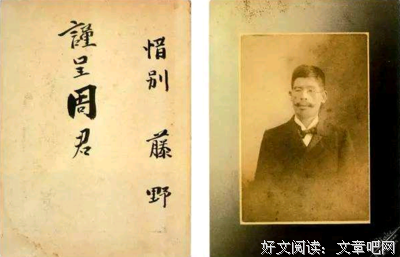 惜别 藤野
謹呈周君
好文阅读：文章吧网